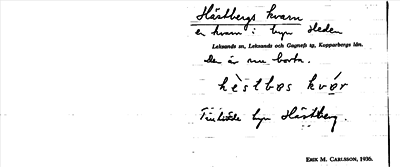 Hästbergs kvarn
en kvarn i byn Heden
Leksands sn, Leksands och Gagnefs tg, Kopparbergs län.
Den är nu borta.
hèstbæs kvǿr
byn Hästberg.
ERIK M. CARLSSON, 1936.